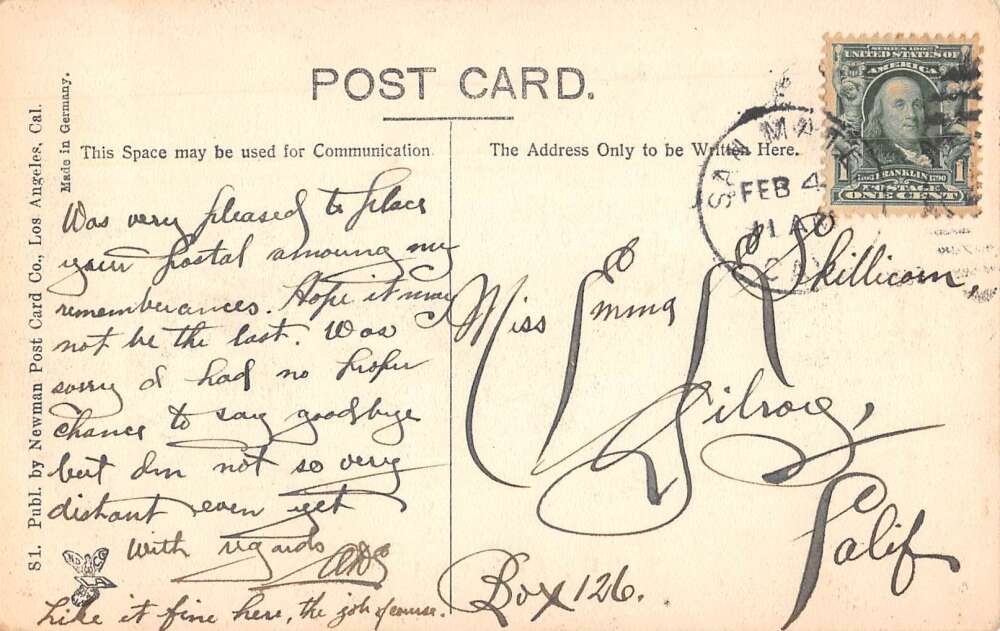 POST CARD.
This Space may be used for Communication
The Address Only to be Written Here.
S1. Publ. by Newman Post Card Co., Los Angeles, Cal.
Made in Germany.
Was very pleased to place
your postal amoung my
rememberances. Hope it may
not be the last. Was
sorry I had no proper
chance to say goodbye
but Im not so very
distant even yet
With regards
Like it fine here, the job of course.
Miss Emma Skillicorn,
Gilroy,
Calif
Box 126.
SERIES 1902
UNITED STATES OF
AMERICA
1706 FRANKLIN 1790
1 POSTAGE 1
ONE CENT
SAN MA
FEB 4
11 A